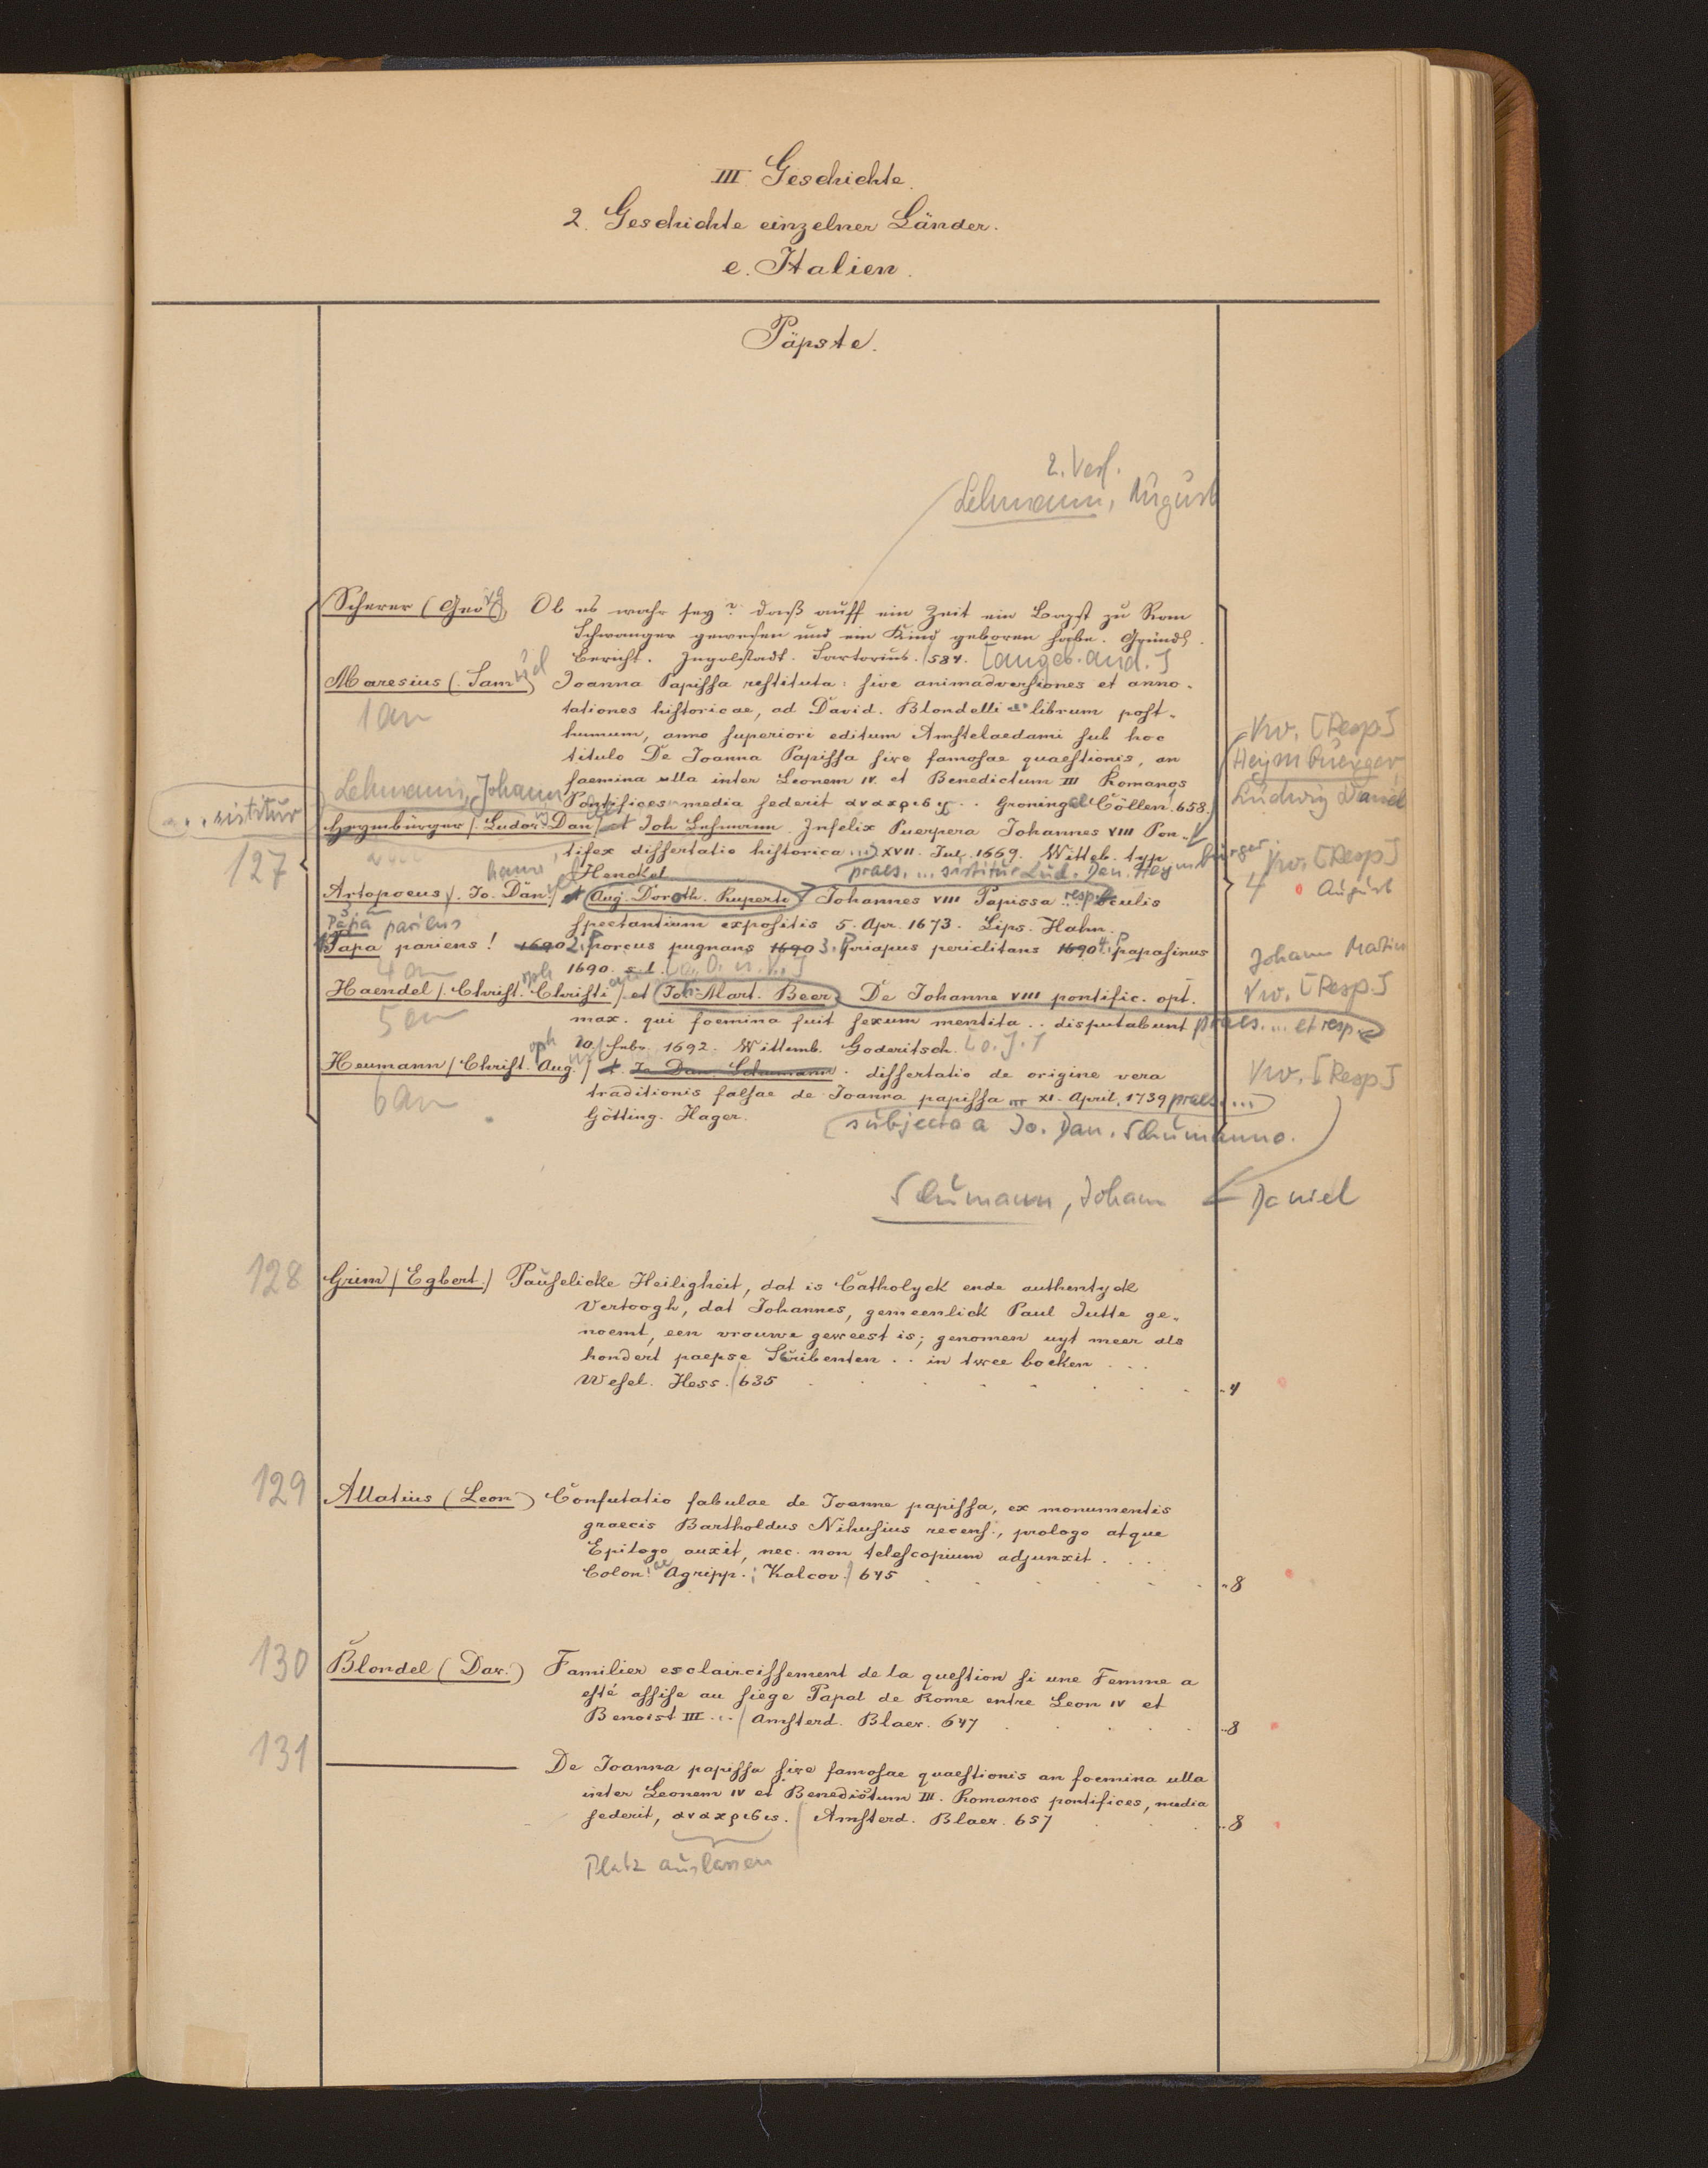 III. Geschichte.
2. Geschichte einzelner Länder.
e. Italien.
Päpste.
2. Verf.
Lehmann, August
Scherer (Georg) Ob es wahr sey? daß auff ein Zeit ein Bapst zu Rom
Schwanger gewesen und ein Kind geboren habe. Gründl.
Bericht. Ingolstadt. Sartorius. 1584. [angeb. and.]
Maresius (Samuel) Joanna Papissa restituta: sive animadversiones et anno-
1 an
tationes historicae, ad David. Blondelli librum post-
humum, anno superiori editum Amstelaedami sub hoc
titulo De Joanna Papissa sive famosae quaestionis, an
faemina ulla inter Leonem IV. et Benedictum III Romanos
Lehmann, Johann
Pontifices media sederit ανακρισις .. Groning Cöllen. 658.
Vw. [Resp]
Heymbuerger,
Ludwig Daniel
... sistitur
127
Heymbürger (Ludov. Dan.) et Joh Lehmann. Infelix Puerpera Johannes VIII Pon-
tifex dissertatio historica ... XVII. Jul. 1669. Witteb. typ
Henckel
praes. ... sistitur Lud. Dan. Heymbürger
Vw. [Resp]
4 August
Artopoeus (Jo. Dan.) et Aug. Doroth. Ruperti Johannes VIII Papissa ... resp. oculis
spectantium expositis 5. Apr. 1673. Lips. Hahn.
Papa pariens
Papa pariens! 1690 2. Porcus pugnans 1690 3. Priapus periclitans 1690 4. papasinus
1690. s. l. [o. O. u. V.]
4 an
Johann Martin
Vw. [Resp.]
Haendel (Christoph Christian) et Joh. Mart. Beer De Johanne VIII pontific. opt.
5 an
max. qui foemina fuit sexum mentita .. disputabunt praes. ... et resp.
20. Febr. 1692. Wittemb. Goderitsch. [o. J.]
Heumann (Christoph Aug.) et Jo Dan. Schumann. dissertatio de origine vera
Vw. [Resp]
6 an
traditionis falsae de Joanna papissa ... XI. April. 1739 praes. ...
Götting. Hager.
subjecta a Jo. Dan. Schumanno.
Schumann, Johann Daniel
128
Grim (Egbert.) Pauselicke Heiligheit, dat is Catholyck ende authentyck
Vertoogh, dat Johannes, gemeenlick Paul Jutte ge-
noemt, een vrouwe geweest is; genomen uyt meer als
hondert paepse Scribenten .. in twee boeken ...
Wesel. Hess. 635 "4
129
Allatius (Leon) Confutatio fabulae de Joanna papissa, ex monumentis
graecis Bartholdus Nihusius recens., prologo atque
Epilogo auxit, nec. non telescopium adjunxit ...
Colon. Agripp.; Kalcov. 645 "8
130
Blondel (Dav.) Familier esclaircissement de la question si une Femme a
esté assise au siege Papal de Rome entre Leon IV et
Benoist III ... Amsterd. Blaer. 647 "8
131
De Joanna papissa sive famosae quaestionis an foemina ulla
inter Leonem IV et Benedictum III. Romanos pontifices, media
sederit, ανακρισις. Amsterd. Blaer. 657 "8
Platz auslassen